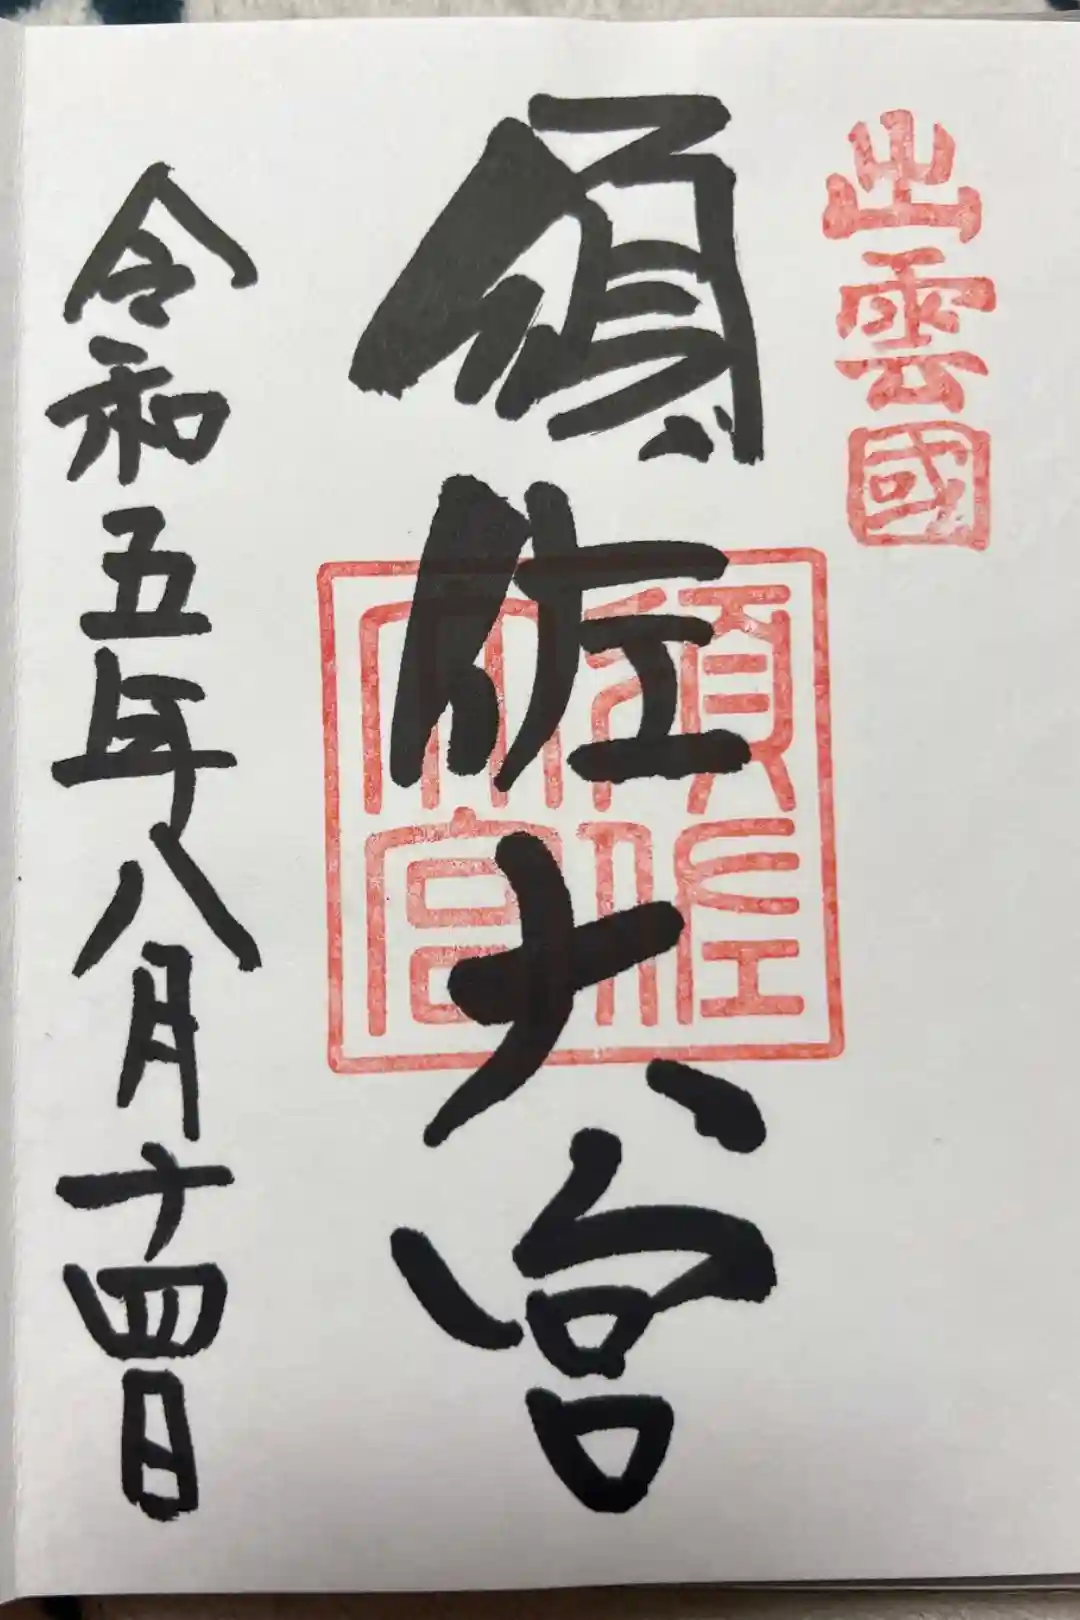 出雲國
須佐大宮
須佐
大宮
令和五年八月十四日